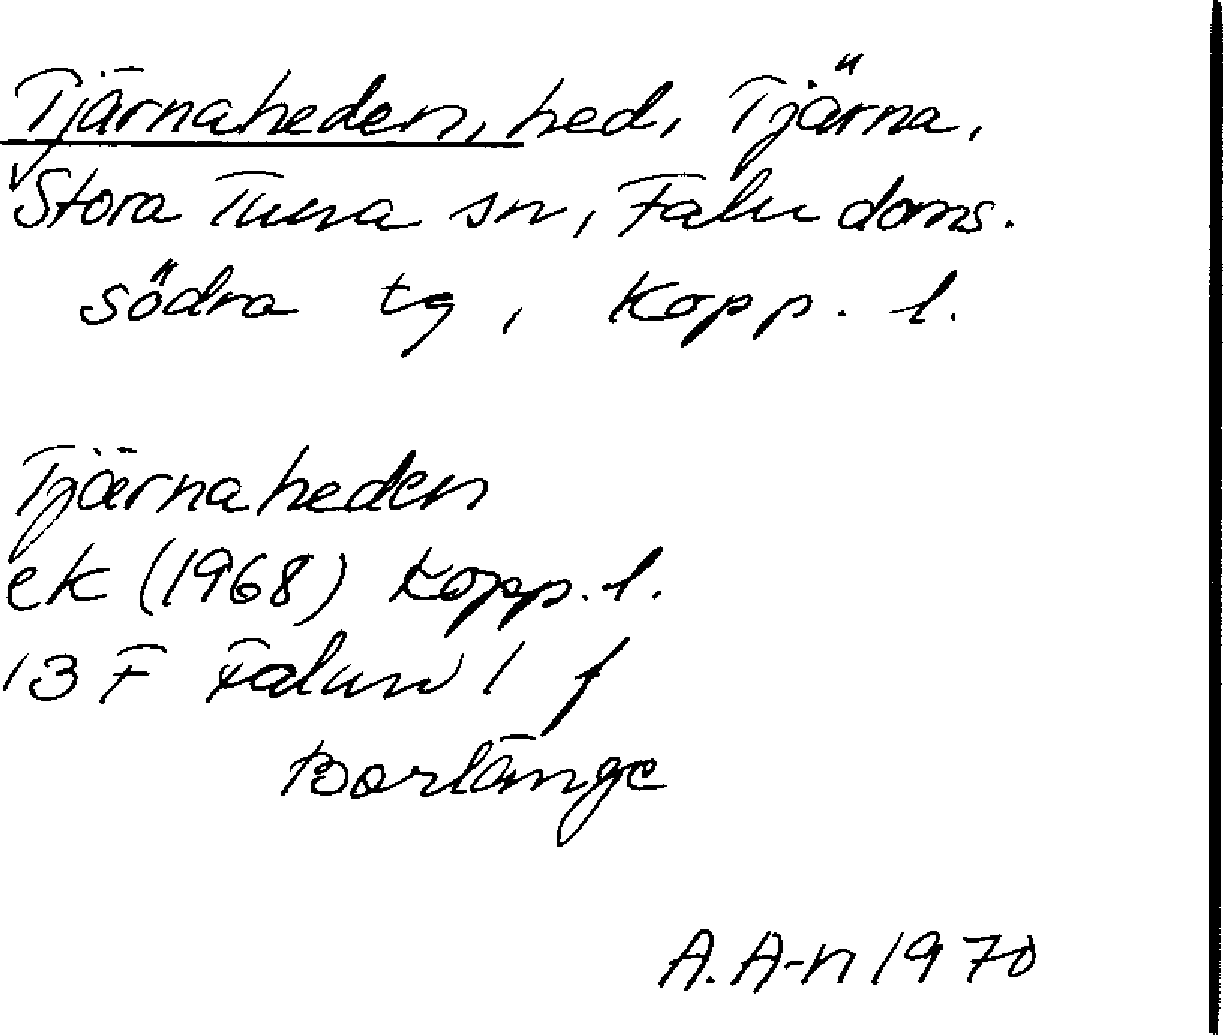 Tjärnaheden, hed, Tjärna,
Stora Tuna sn, Falu doms.
södra tg, Kopp. l.
Tjärnaheden
ek (1968) Kopp. l.
13 F Falun 1 f
Borlänge
A. A-n 1970